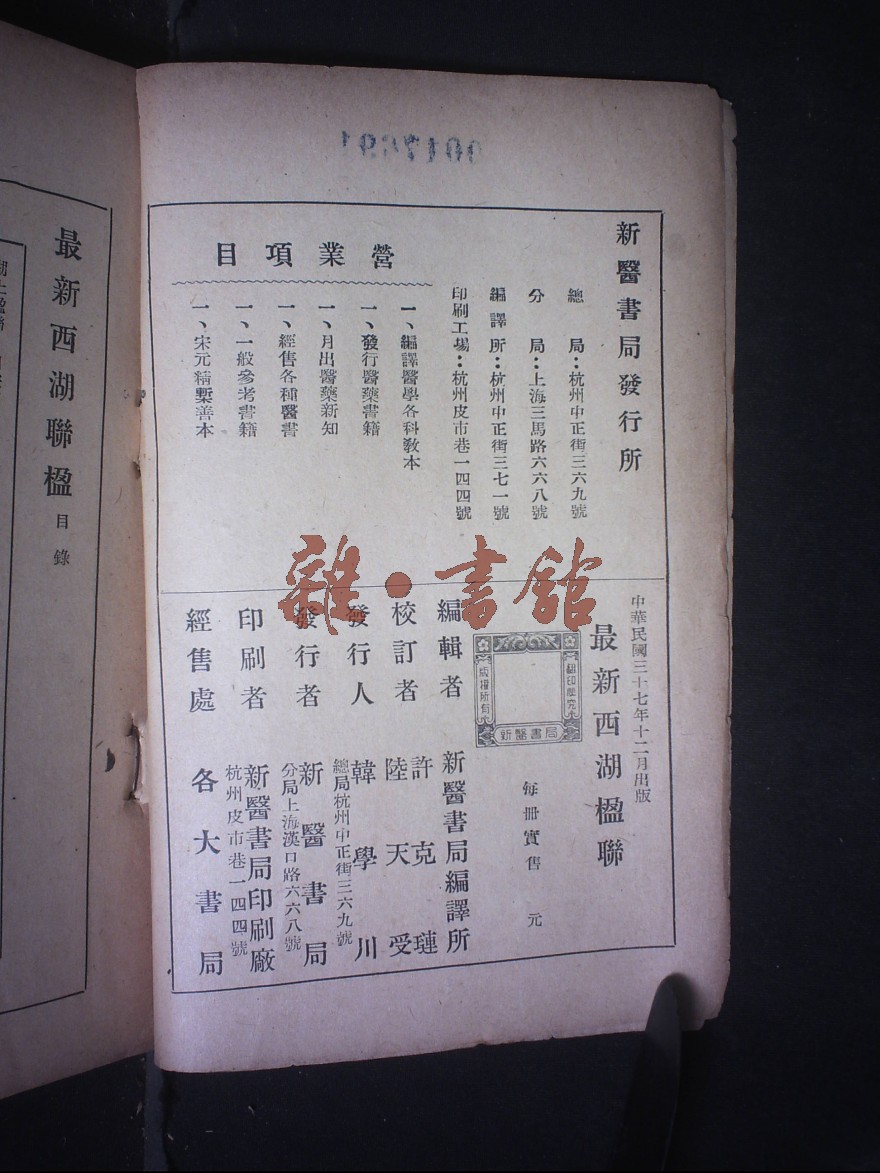 新醫書局發行所
總局：杭州中正街三六九號
分局：上海三馬路六六八號
編譯所：杭州中正街三七一號
印刷工場：杭州皮市巷一四四號
營業項目
一、編譯醫學各科教本
一、發行醫藥書籍
一、月出醫藥新知
一、經售各種醫書
一、一般參考書籍
一、宋元精槧善本
中華民國三十七年十二月出版
最新西湖楹聯
版權所有
翻印應究
新醫書局
每冊實售 元
編輯者 新醫書局編譯所
校訂者 許克璉
陸天受
發行人 韓學川
發行者 新醫書局
總局杭州中正街三六九號
分局上海漢口路六六八號
印刷者 新醫書局印刷廠
杭州皮市巷一四四號
經售處 各大書局
雜·書館
最新西湖聯楹 目錄